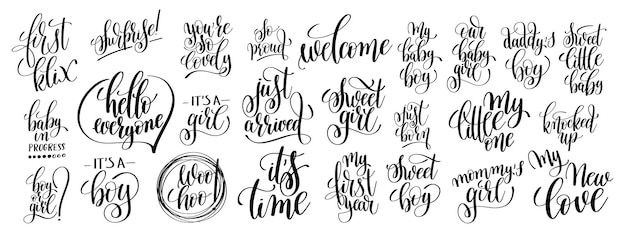 first
klix
surprise!
you're
so
lovely
so
proud
welcome
my
baby
boy
our
baby
girl
daddy's
boy
Sweet
little
baby
baby
in
PROGRESS
hello
everyone
IT'S A
girl
just
arrived
Sweet
girl
just
born
My
little
one
knocked
up
boy
or
girl?
IT'S A
boy
woot
hoo!
it's
time
my
first
year
Sweet
boy
mommy's
girl
My
New
love